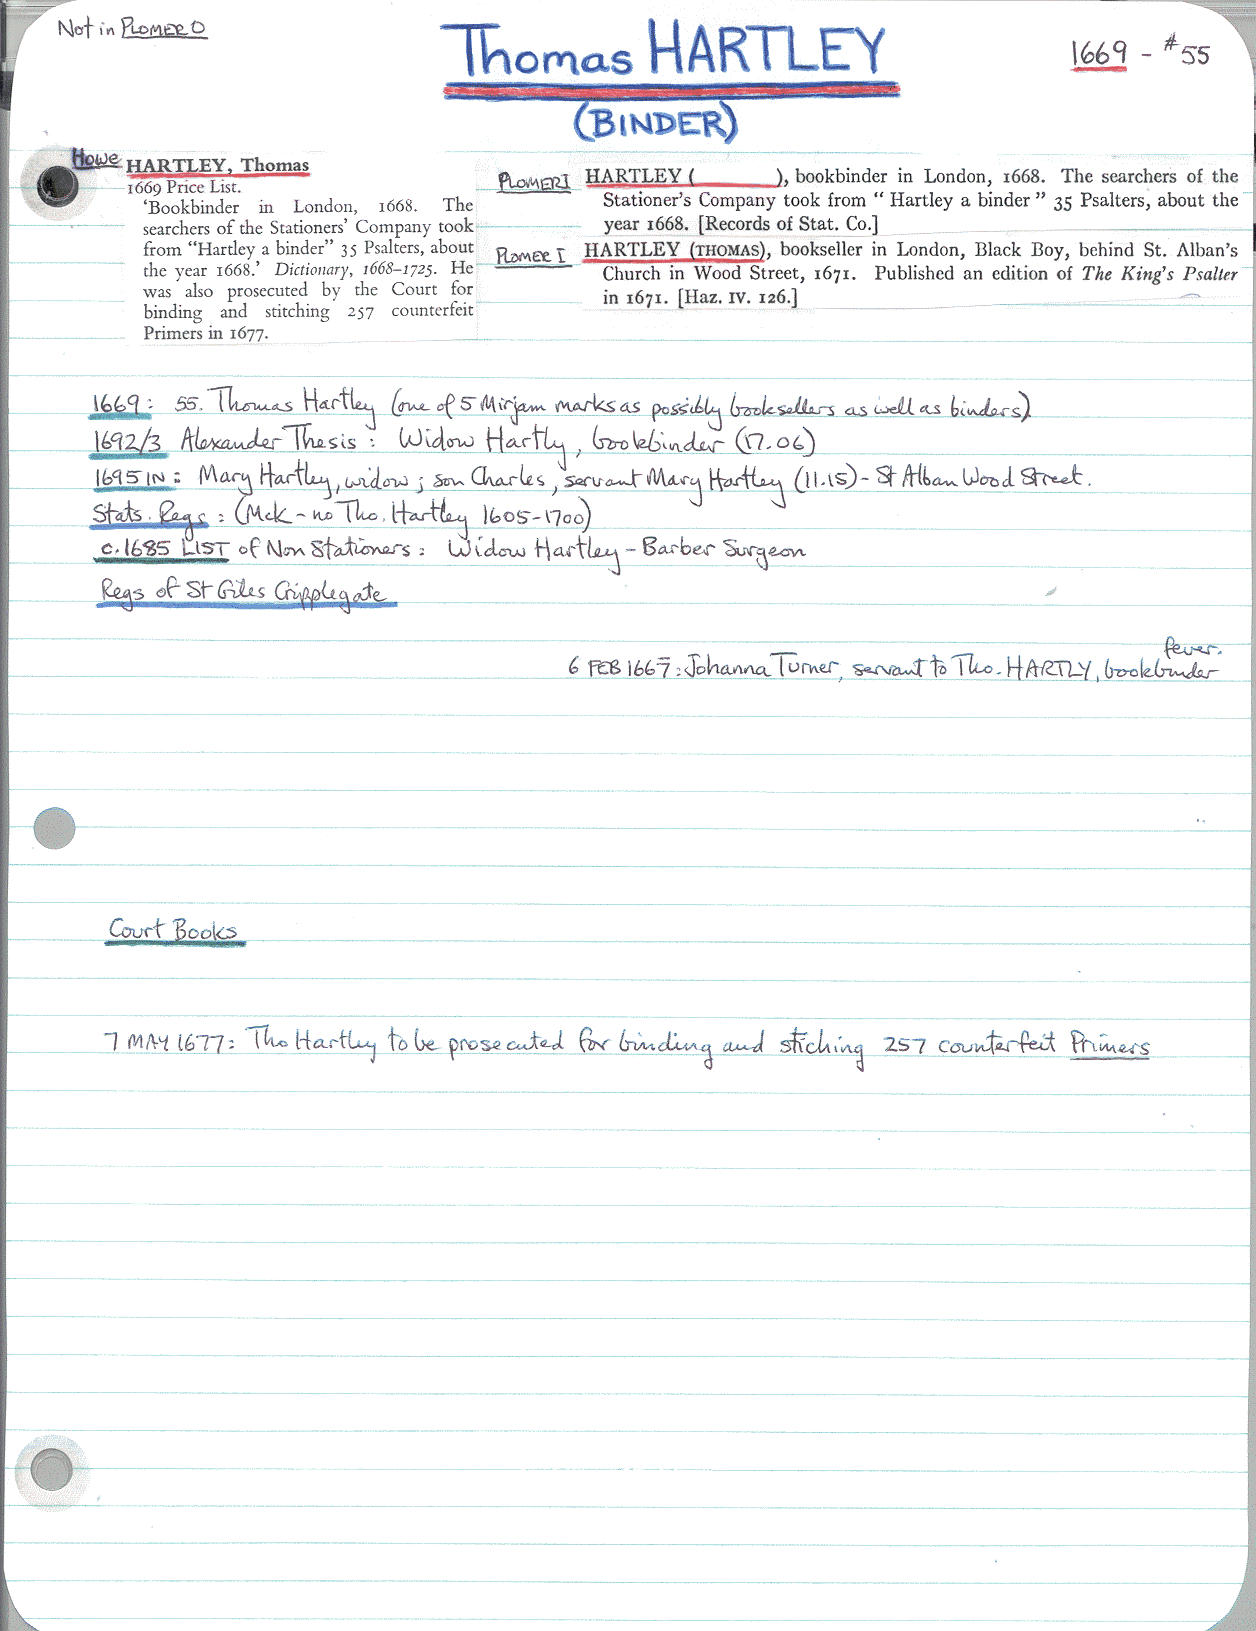 Not in PLOMER O
Thomas HARTLEY
(BINDER)
1669 - #55
Howe
HARTLEY, Thomas
1669 Price List.
‘Bookbinder in London, 1668. The
searchers of the Stationers’ Company took
from “Hartley a binder” 35 Psalters, about
the year 1668.’ Dictionary, 1668–1725. He
was also prosecuted by the Court for
binding and stitching 257 counterfeit
Primers in 1677.
PLOMER I
HARTLEY ( ), bookbinder in London, 1668. The searchers of the
Stationer's Company took from “ Hartley a binder ” 35 Psalters, about the
year 1668. [Records of Stat. Co.]
PLOMER I
HARTLEY (THOMAS), bookseller in London, Black Boy, behind St. Alban's
Church in Wood Street, 1671. Published an edition of The King's Psalter
in 1671. [Haz. IV. 126.]
1669: 55. Thomas Hartley (one of 5 Mirjam marks as possibly booksellers as well as binders)
1692/3 Alexander Thesis: Widow Hartly, bookbinder (17.06)
1695 IN: Mary Hartley, widow; son Charles, servant Mary Hartley (11.15) - St Alban Wood Street.
Stats. Regs: (McK - no Tho. Hartley 1605-1700)
c.1685 LIST of Non Stationers: Widow Hartley - Barber Surgeon
Regs of St Giles Cripplegate
fever.
6 FEB 1667: Johanna Turner, servant to Tho. HARTLY, bookbinder
Court Books
7 MAY 1677: Tho Hartley to be prosecuted for binding and stiching 257 counterfeit Primers